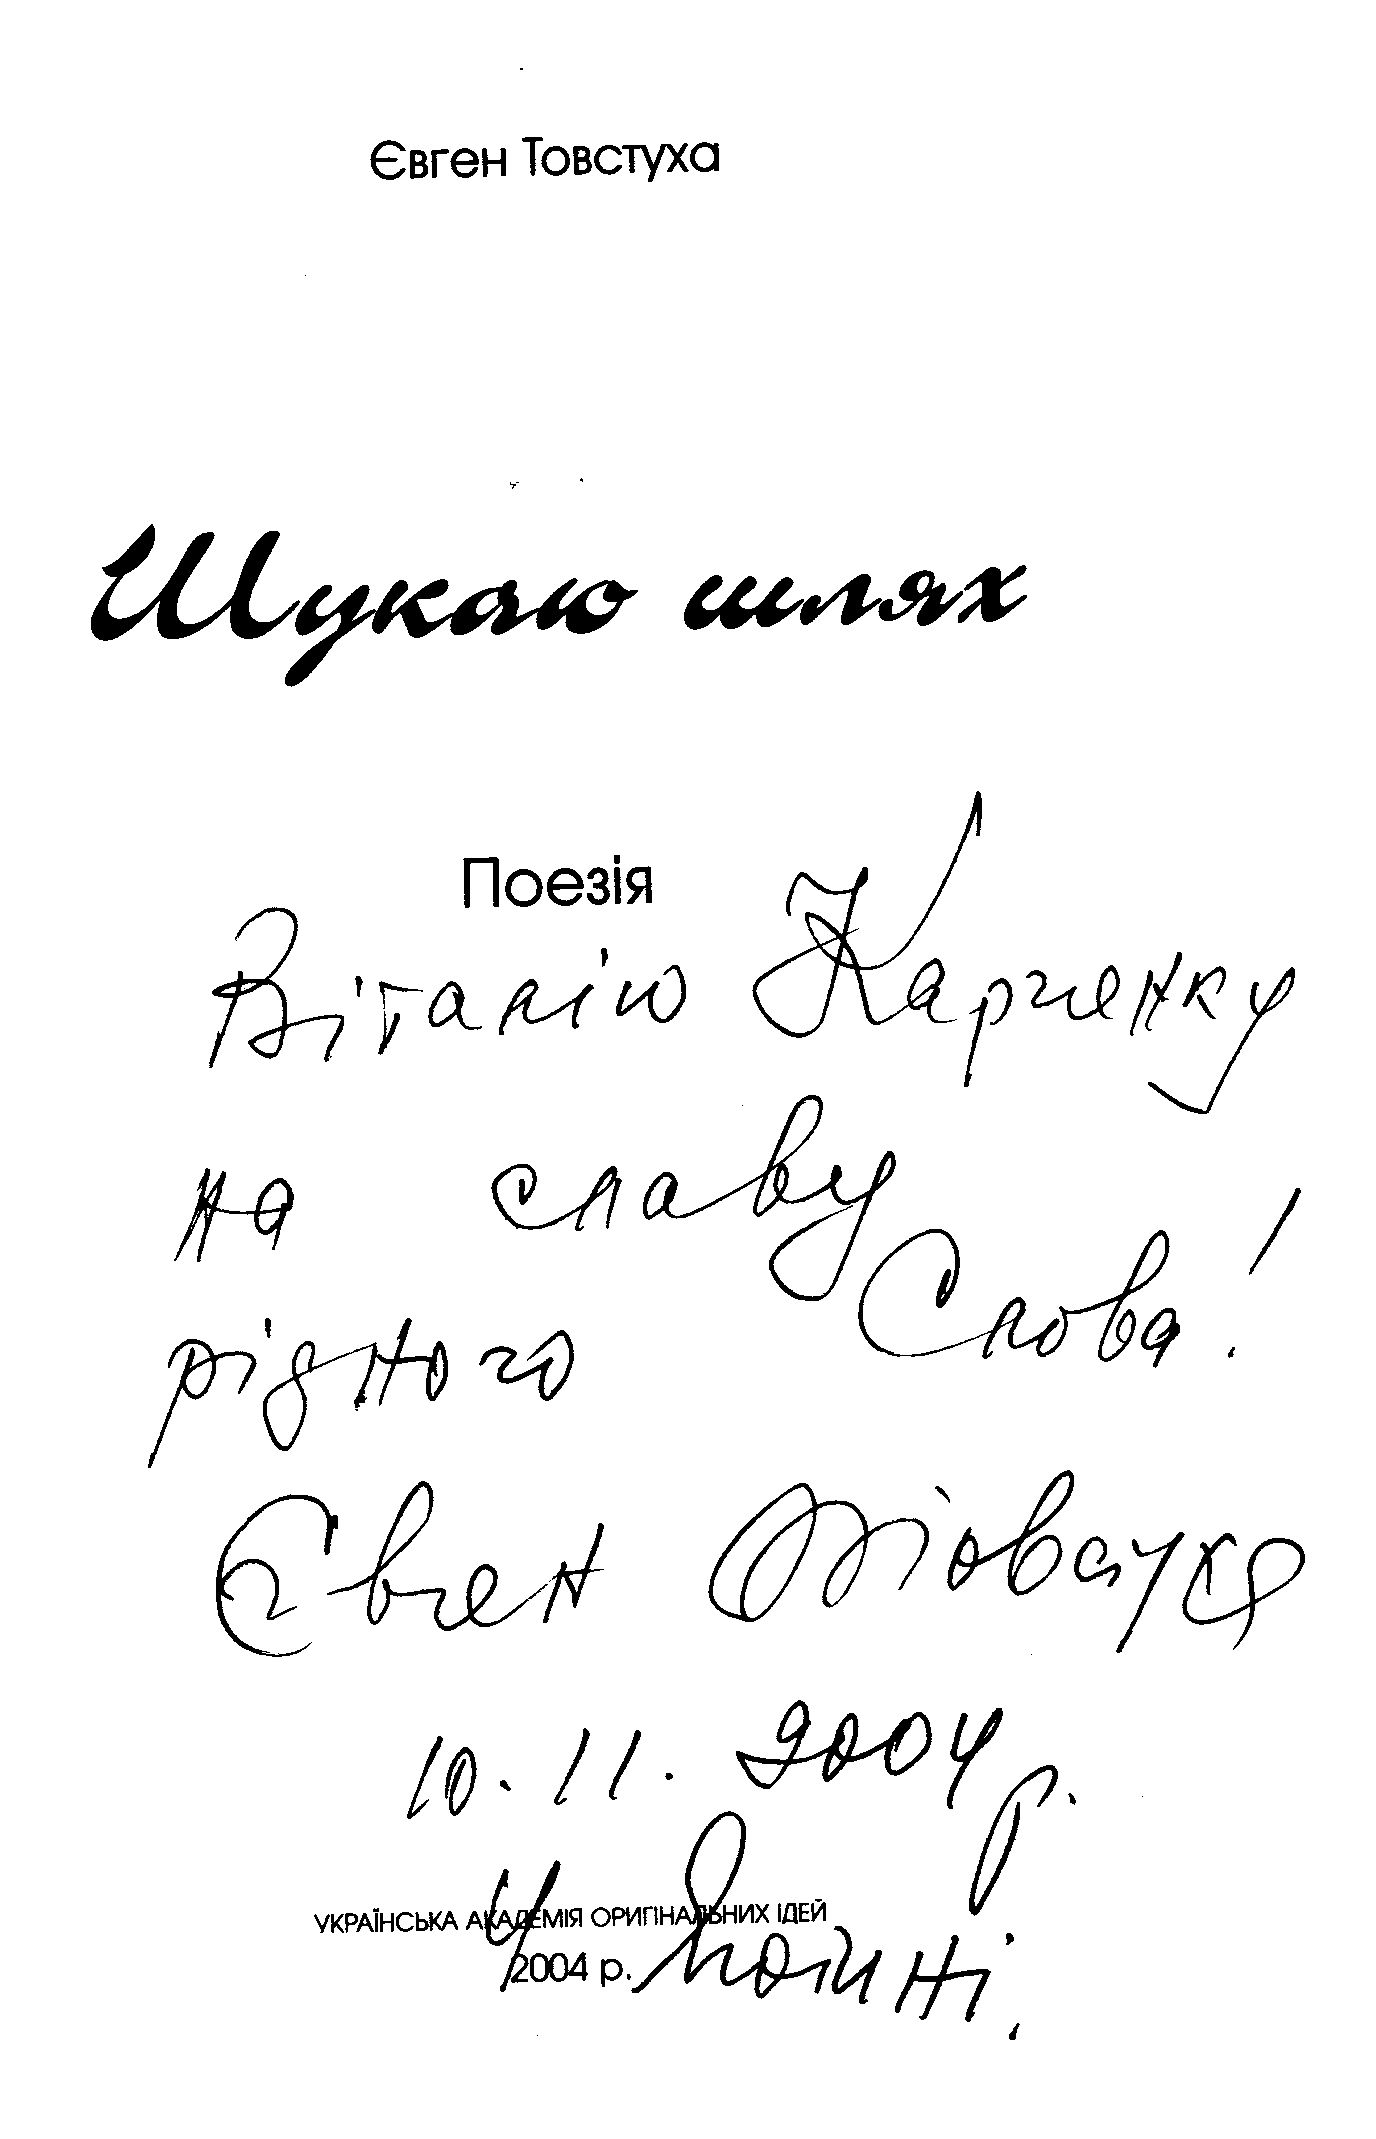 Євген Товстуха
Шукаю шлях
Поезія
Віталію Карпенку
на славу
рідного Слова!
Євген Товстуха
10. 11. 2004 р.
УКРАЇНСЬКА АКАДЕМІЯ ОРИГІНАЛЬНИХ ІДЕЙ
2004 р.
У